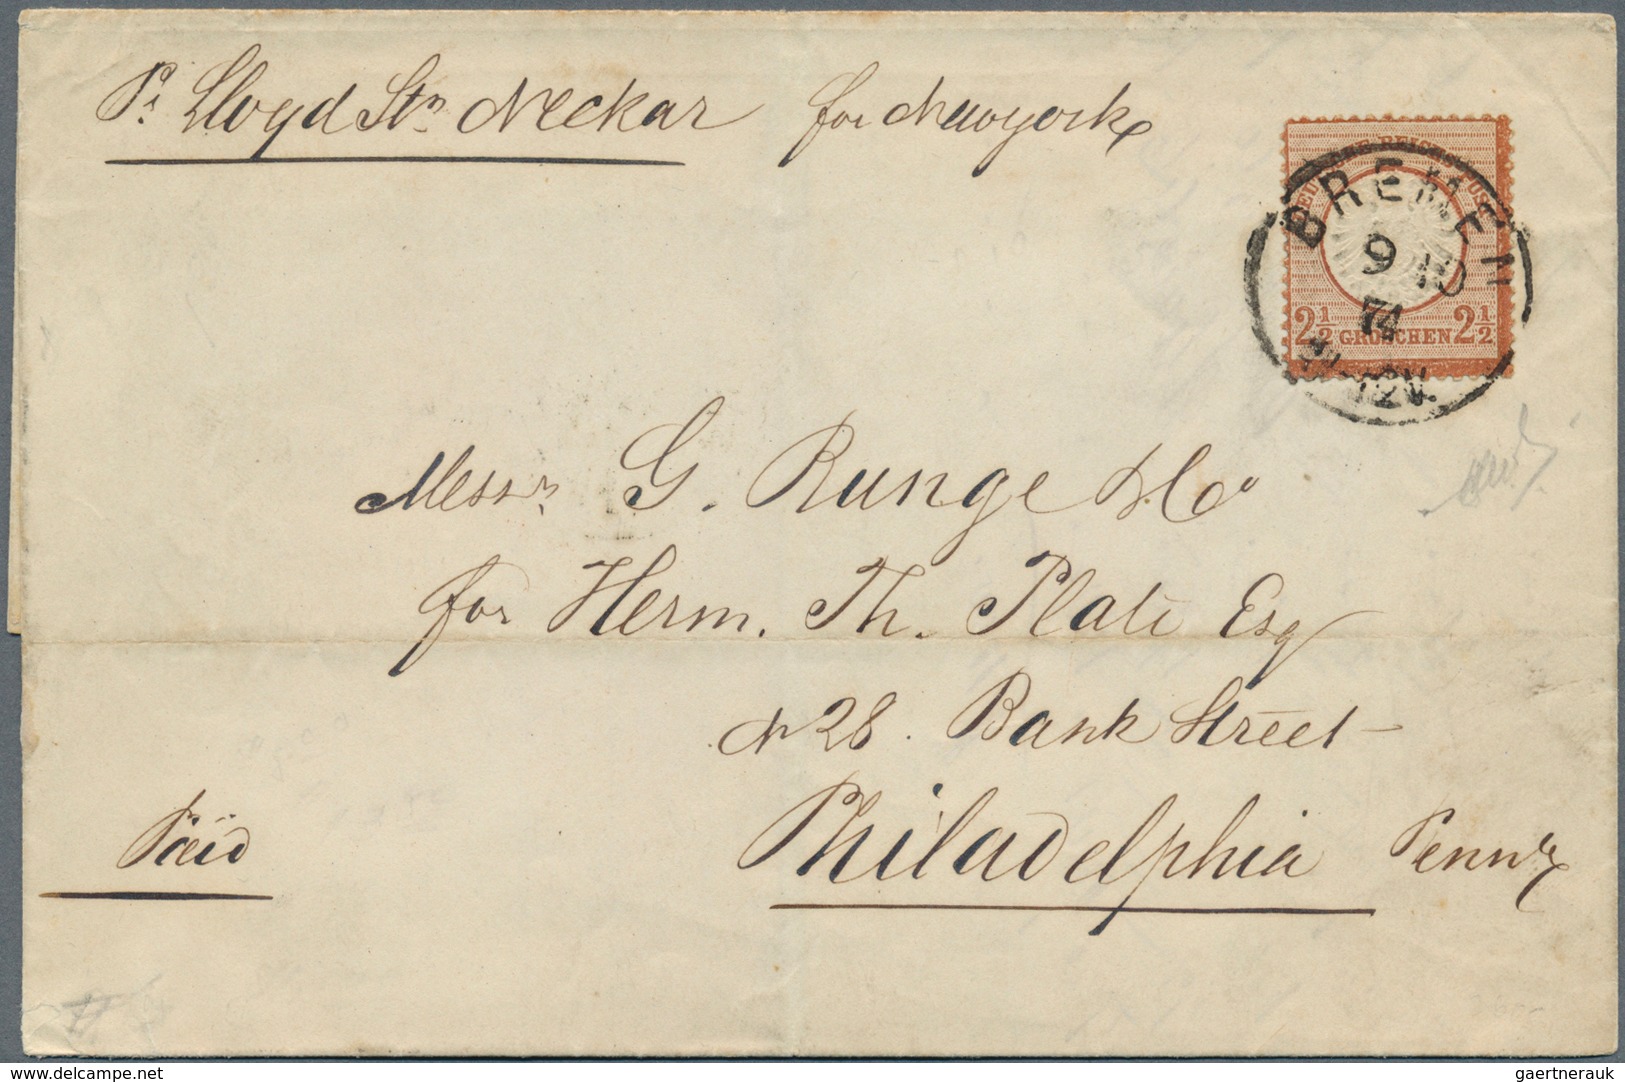 Pr. Lloyd Stmr Neckar for Newyork
DEUTSCHE REICHS-POST
BREMEN
9 10
74
2½ GROSCHEN 2½
Messrs. G. Runge & Co
for Herm. Th. Plate Esq
N 28. Bank Street
Philadelphia Penna
Paid
delcampe.net
gaertnerauk